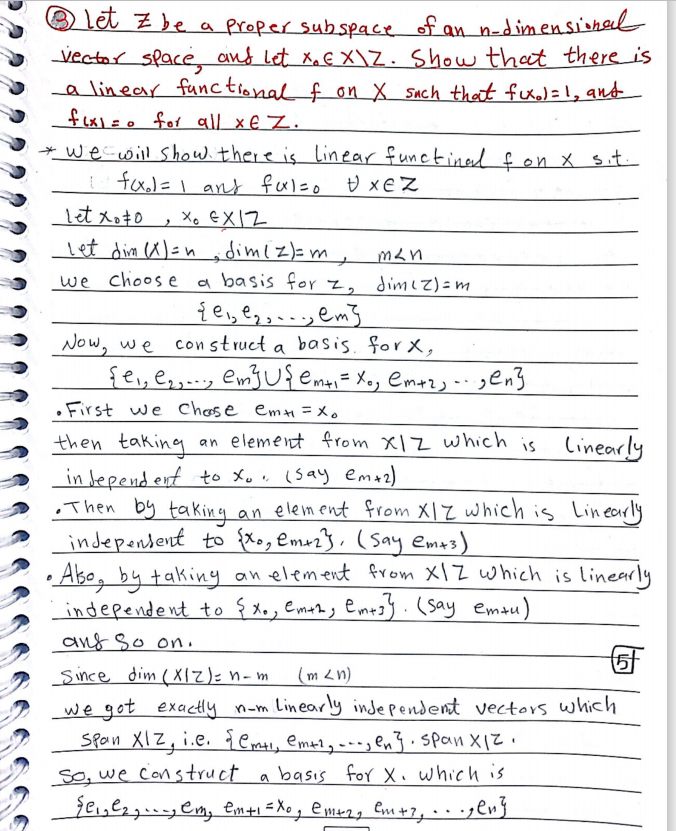 ③ Let Z be a proper subspace of an n-dimensional
vector space, and let x₀ ∈ X\Z. Show that there is
a linear functional f on X such that f(x₀)=1, and
f(x)=0 for all x∈Z.
* we will show there is linear functinal f on X s.t.
f(x₀)=1 and f(x)=0 ∀ x∈Z
let x₀≠0 , x₀ ∈ X\Z
let dim(X)=n , dim(Z)=m , m<n
we choose a basis for Z, dim(Z)=m
{e₁, e₂, ..., eₘ}
Now, we construct a basis for X,
{e₁, e₂, ..., eₘ}∪{eₘ₊₁=x₀, eₘ₊₂, ..., eₙ}
• First we chose eₘ₊₁ = x₀
then taking an element from X\Z which is linearly
independent to x₀. (say eₘ₊₂)
• Then by taking an element from X\Z which is linearly
independent to {x₀, eₘ₊₂}. (say eₘ₊₃)
• Also, by taking an element from X\Z which is linearly
independent to {x₀, eₘ₊₂, eₘ₊₃}. (say eₘ₊₄)
and so on.
5
Since dim(X\Z)=n-m (m<n)
we got exactly n-m linearly independent vectors which
span X\Z, i.e. {eₘ₊₁, eₘ₊₂, ..., eₙ}. span X\Z.
So, we construct a basis for X. which is
{e₁, e₂, ..., eₘ, eₘ₊₁=x₀, eₘ₊₂, eₘ₊₃, ..., eₙ}